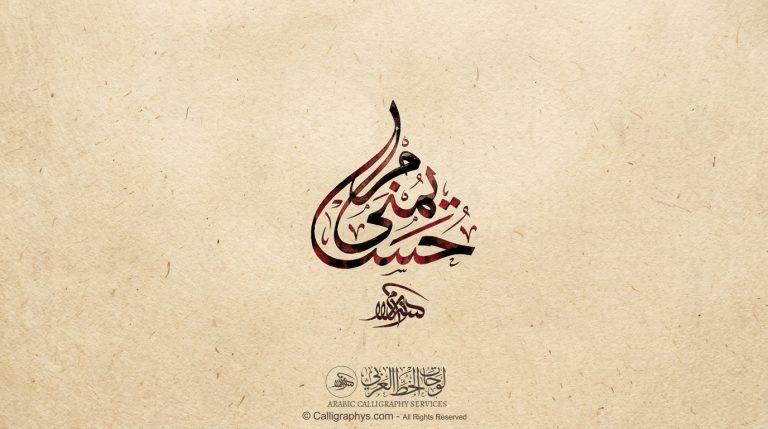 يمنى
حسام
لوحات الخط العربي
ARABIC CALLIGRAPHY SERVICES
© Calligraphys.com - All Rights Reserved